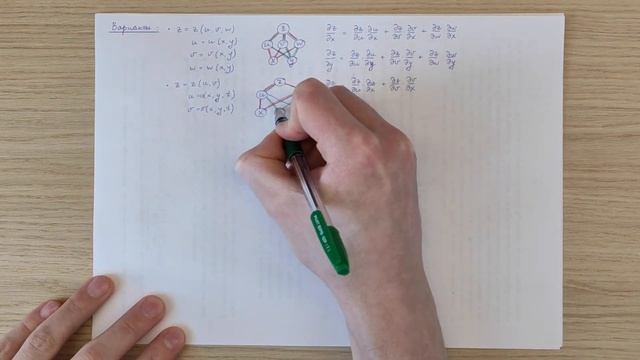 Варианты: • z = z(u, v, w)
u = u(x, y)
v = v(x, y)
w = w(x, y)
z
u v w
x y
∂z/∂x = ∂z/∂u ∂u/∂x + ∂z/∂v ∂v/∂x + ∂z/∂w ∂w/∂x
∂z/∂y = ∂z/∂u ∂u/∂y + ∂z/∂v ∂v/∂y + ∂z/∂w ∂w/∂y
• z = z(u, v)
u = u(x, y, t)
v = v(x, y, t)
z
u
x
∂z/∂u ∂u/∂x + ∂z/∂v ∂v/∂x